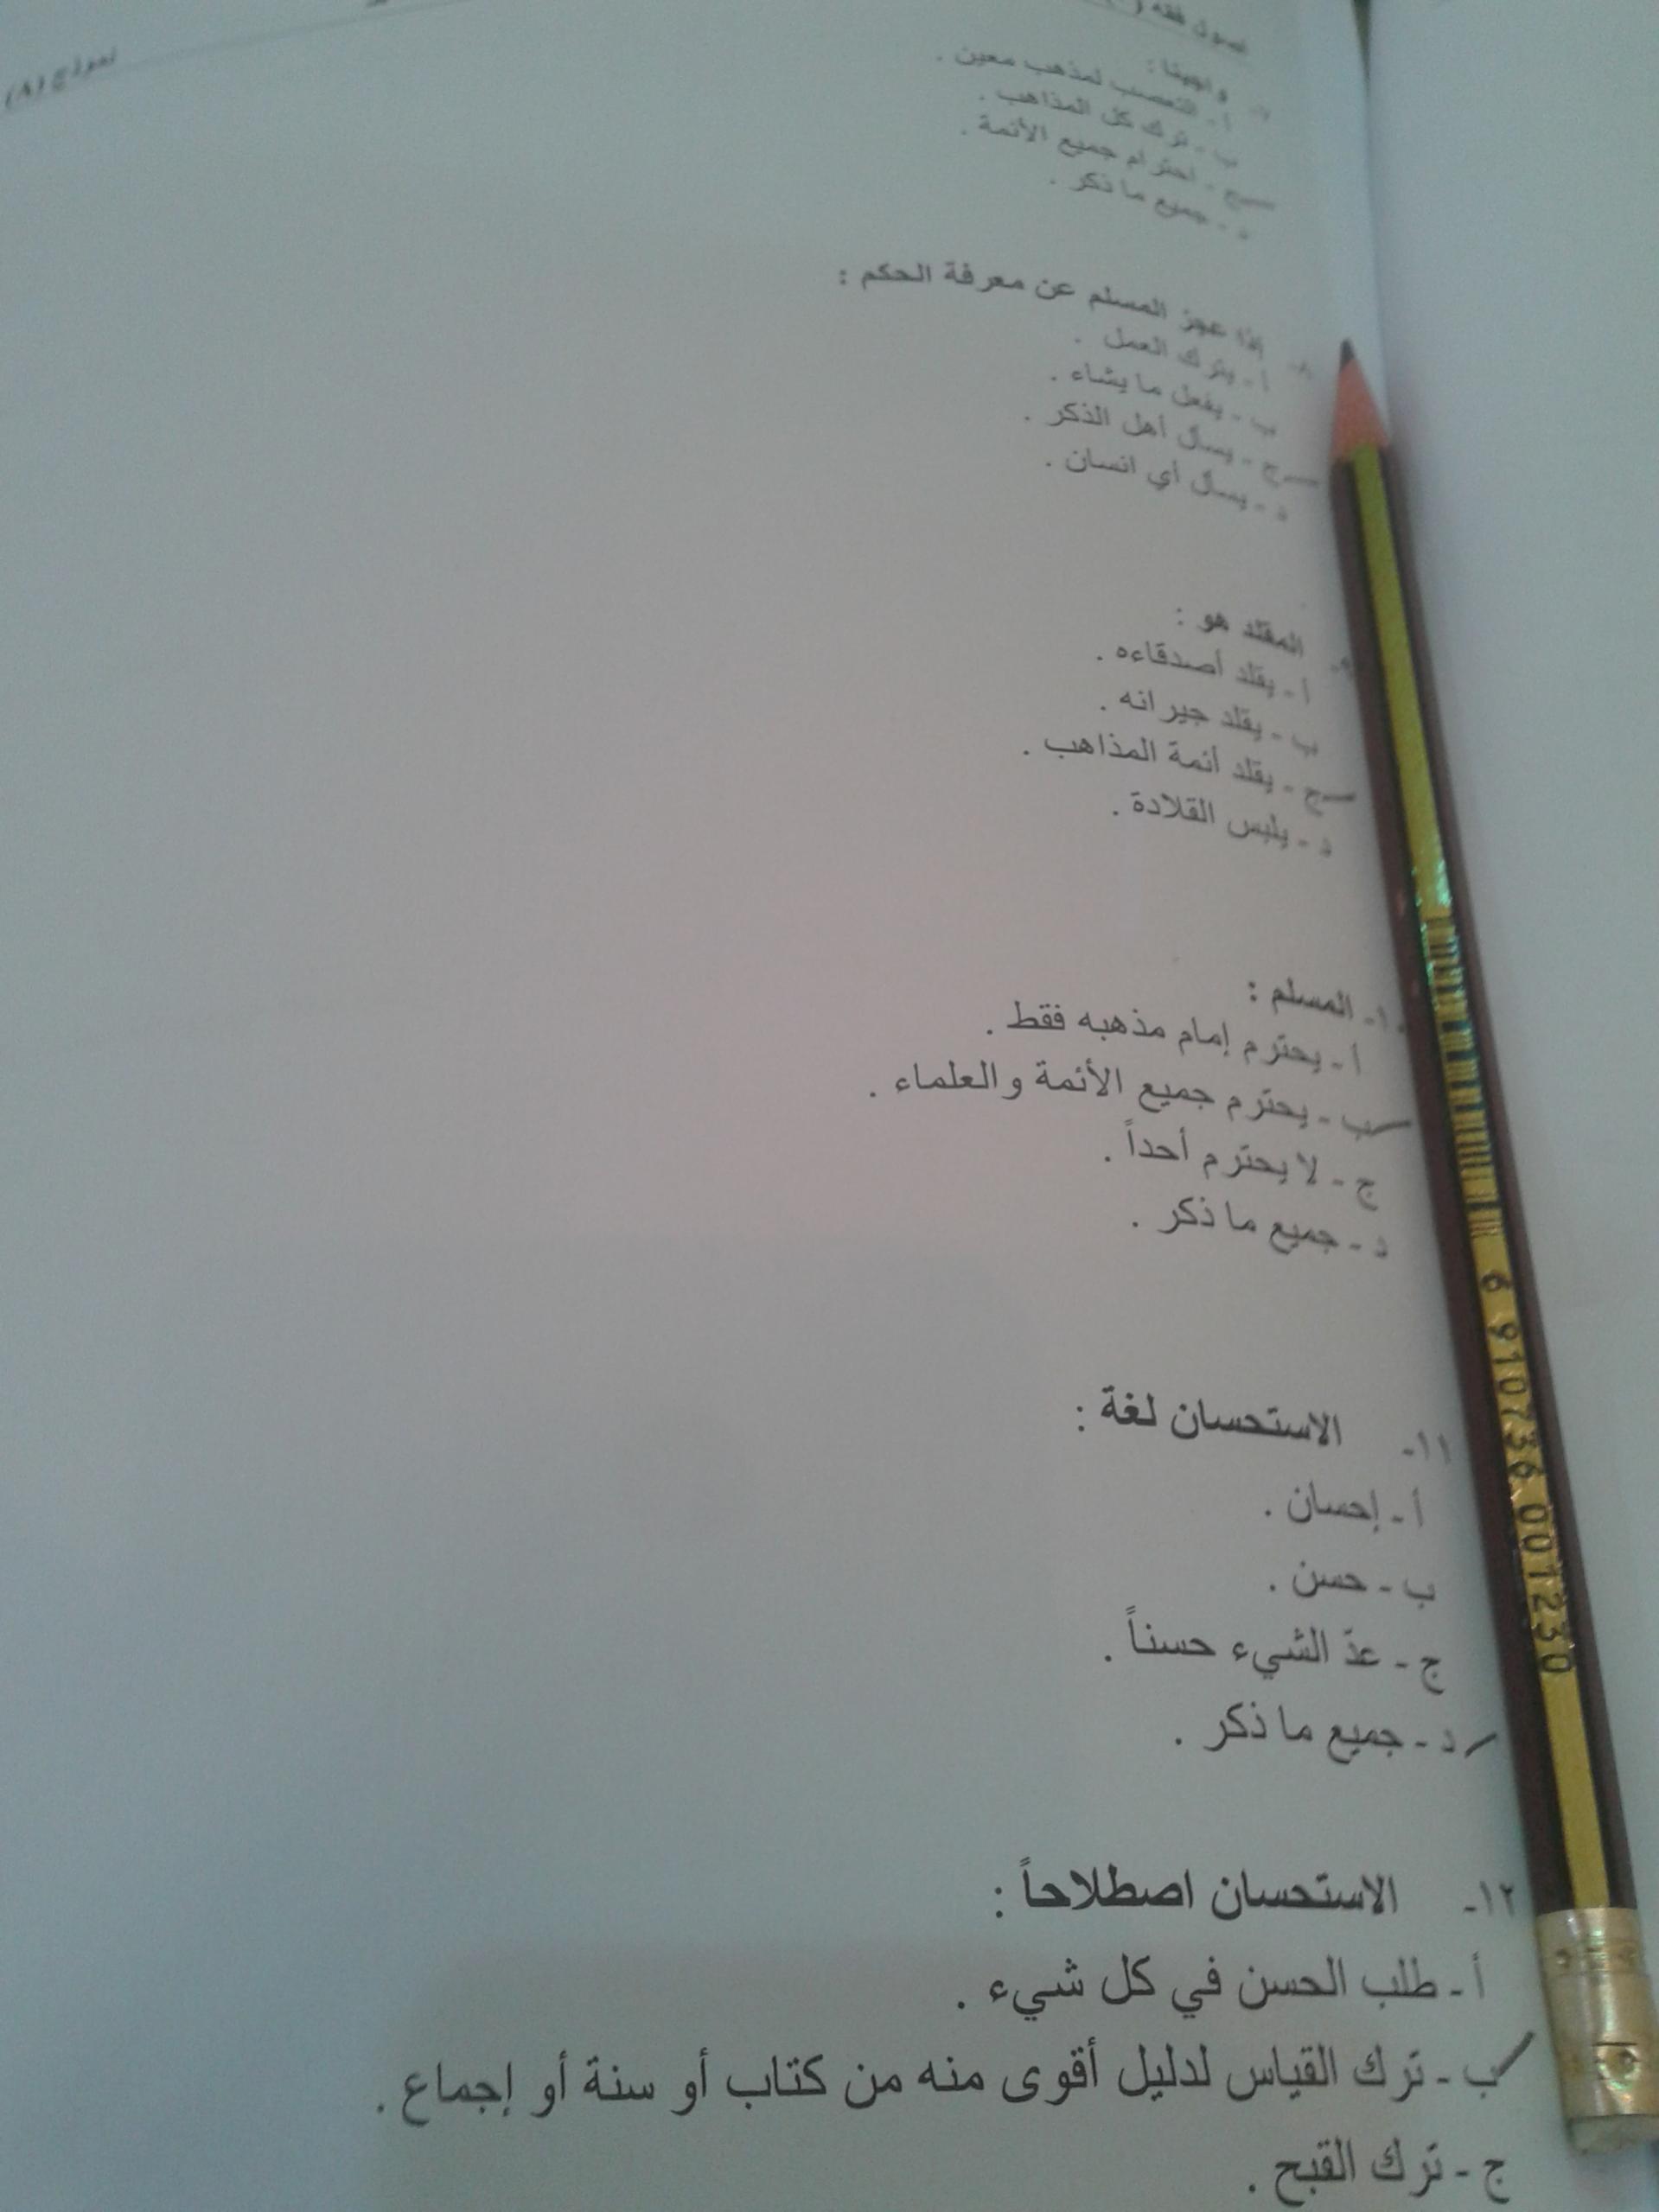 نموذج (A)
أصول فقه (
٧- واجبنا :
أ - التعصب لمذهب معين .
ب - ترك كل المذاهب .
ج - احترام جميع الأئمة .
د - جميع ما ذكر .
٨- إذا عجز المسلم عن معرفة الحكم :
أ - يترك العمل .
ب - يفعل ما يشاء .
ج - يسأل أهل الذكر .
د - يسأل أي انسان .
٩- المقلد هو :
أ - يقلد أصدقاءه .
ب - يقلد جيرانه .
ج - يقلد أئمة المذاهب .
د - يلبس القلادة .
١٠- المسلم :
أ - يحترم إمام مذهبه فقط .
ب - يحترم جميع الأئمة والعلماء .
ج - لا يحترم أحداً .
د - جميع ما ذكر .
١١- الاستحسان لغة :
أ - إحسان .
ب - حسن .
ج - عدّ الشيء حسناً .
د - جميع ما ذكر .
١٢- الاستحسان اصطلاحاً :
أ - طلب الحسن في كل شيء .
ب - ترك القياس لدليل أقوى منه من كتاب أو سنة أو إجماع .
ج - ترك القبح .
6 910736 001230